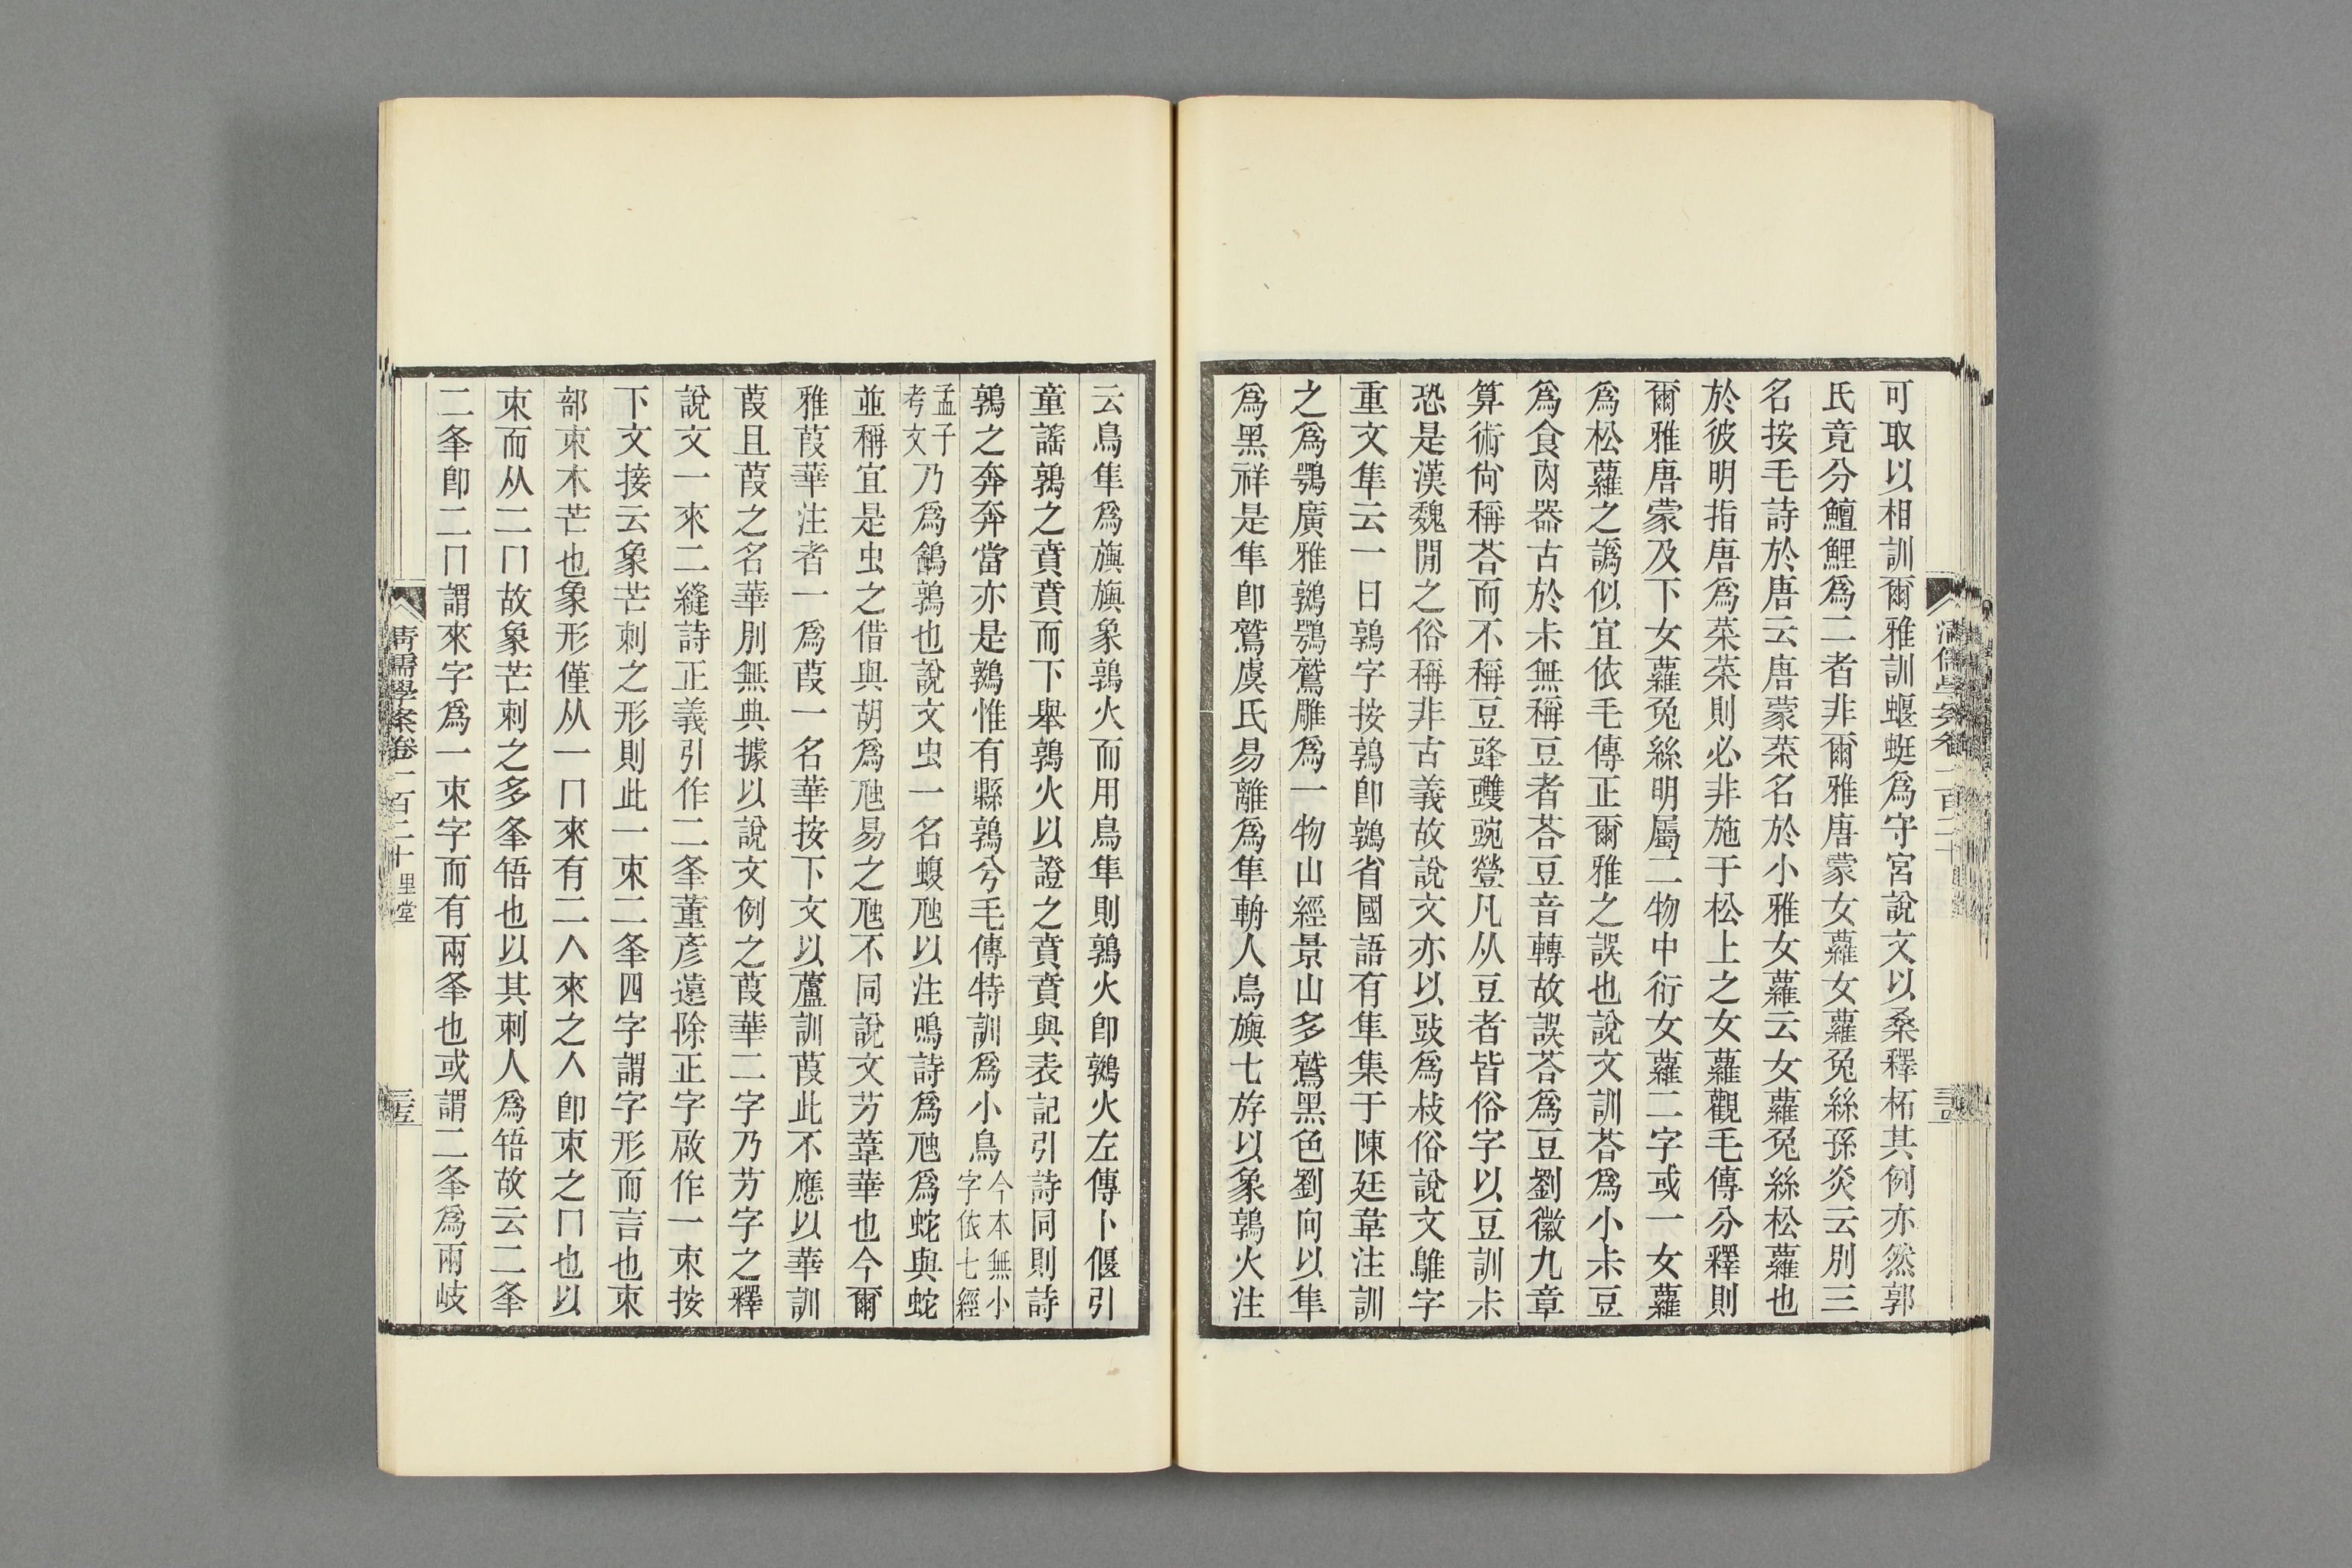 可取以相訓爾雅訓蝘蜓爲守宮說文以桑釋柘其例亦然郭
氏竟分鱣鯉爲二者非爾雅唐蒙女蘿女蘿兔絲孫炎云別三
名按毛詩於唐云唐蒙菜名於小雅女蘿云女蘿兔絲松蘿也
於彼明指唐爲菜菜則必非施于松上之女蘿觀毛傳分釋則
爾雅唐蒙及下女蘿兔絲明屬二物中衍女蘿二字或一女蘿
爲松蘿之譌似宜依毛傳正爾雅之誤也說文訓荅爲小尗豆
爲食肉器古於尗無稱豆者荅豆音轉故誤荅爲豆劉徽九章
算術尙稱荅而不稱豆䜶䜀豌豋凡从豆者皆俗字以豆訓尗
恐是漢魏閒之俗稱非古義故說文亦以豉爲敊俗說文鵻字
重文隼云一曰鶉字按鶉卽鷻省國語有隼集于陳廷韋注訓
之爲鶚廣雅鷻鶚鷲雕爲一物山經景山多鷲黑色劉向以隼
爲黑祥是隼卽鷲虞氏易離爲隼輈人鳥旟七斿以象鶉火注
云鳥隼爲旟旟象鶉火而用鳥隼則鶉火卽鷻火左傳卜偃引
童謠鶉之賁賁而下舉鶉火以證之賁賁與表記引詩同則詩
鶉之奔奔當亦是鷻惟有縣鶉兮毛傳特訓爲小鳥今本無小字依七經
孟子考文乃爲鶴鶉也說文虫一名蝮虺以注鳴詩爲虺爲蛇與蛇
並稱宜是虫之借與胡爲虺易之虺不同說文芀葦華也今爾
雅葭華注者一爲葭一名華按下文以蘆訓葭此不應以華訓
葭且葭之名華別無典據以說文例之葭華二字乃芀字之釋
說文一來二縫詩正義引作二夆董彥遠除正字啟作一朿按
下文接云象芒刺之形則此一朿二夆四字謂字形而言也朿
部朿木芒也象形僅从一冂來有二人來之人卽朿之冂也以
朿而从二冂故象芒刺之多夆啎也以其刺人爲啎故云二夆
二夆卽二冂謂來字爲一朿字而有兩夆也或謂二夆爲兩岐
清儒學案卷一百二十 里堂 三五